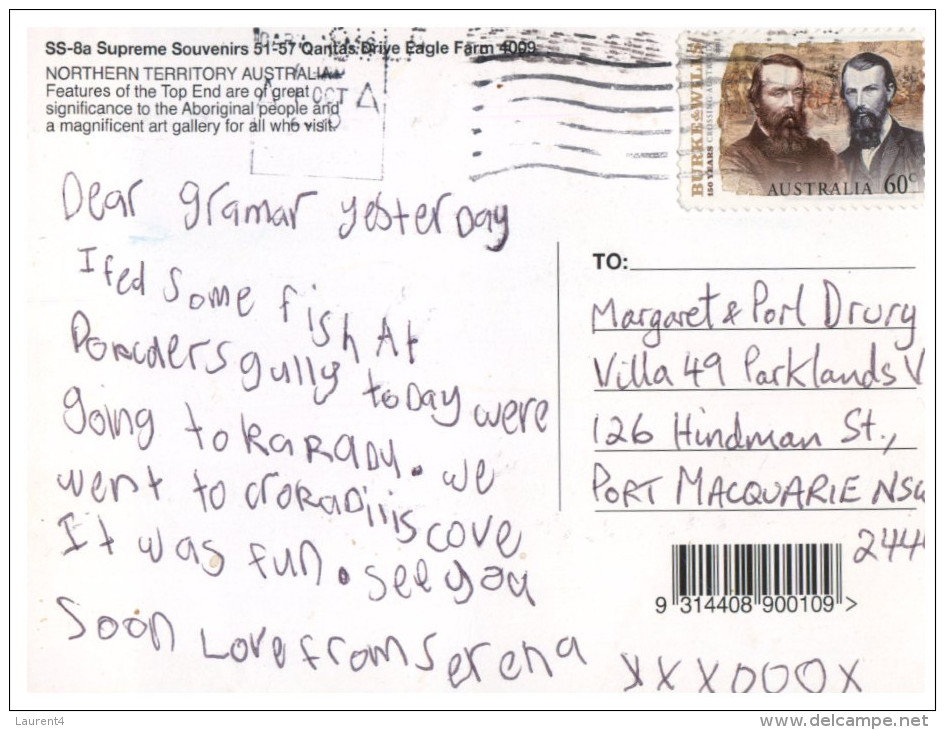 SS-8a Supreme Souvenirs 51-57 Qantas Drive Eagle Farm 4009
NORTHERN TERRITORY AUSTRALIA
Features of the Top End are of great
significance to the Aboriginal people and
a magnificent art gallery for all who visit.
OCT
BURKE & WILLS
150 YEARS CROSSING AUSTRALIA
AUSTRALIA 60c
Dear gramar yesterday
I fed some fish At
gully today were
going to kakaDu. we
went to cove
It was fun. see you
Soon Love from Serena
XXXOOOX
TO:
Margaret & Porl Drury
Villa 49 Parklands V
126 Hindman St.,
PORT MACQUARIE NSW
244
9 314408 900109 >
Laurent4
www.delcampe.net